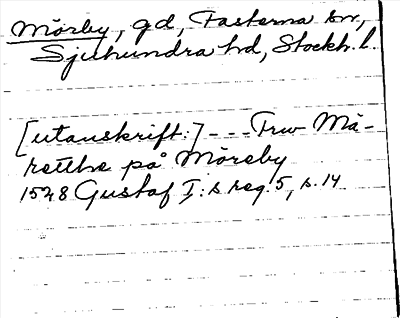 Mörby, gd, Fasterna sn,
Sjuhundra hd, Stockh. l.
[utanskrift:] --- Frw Mä-
retthe på Möreby
1528 Gustaf I:s reg. 5, s. 14